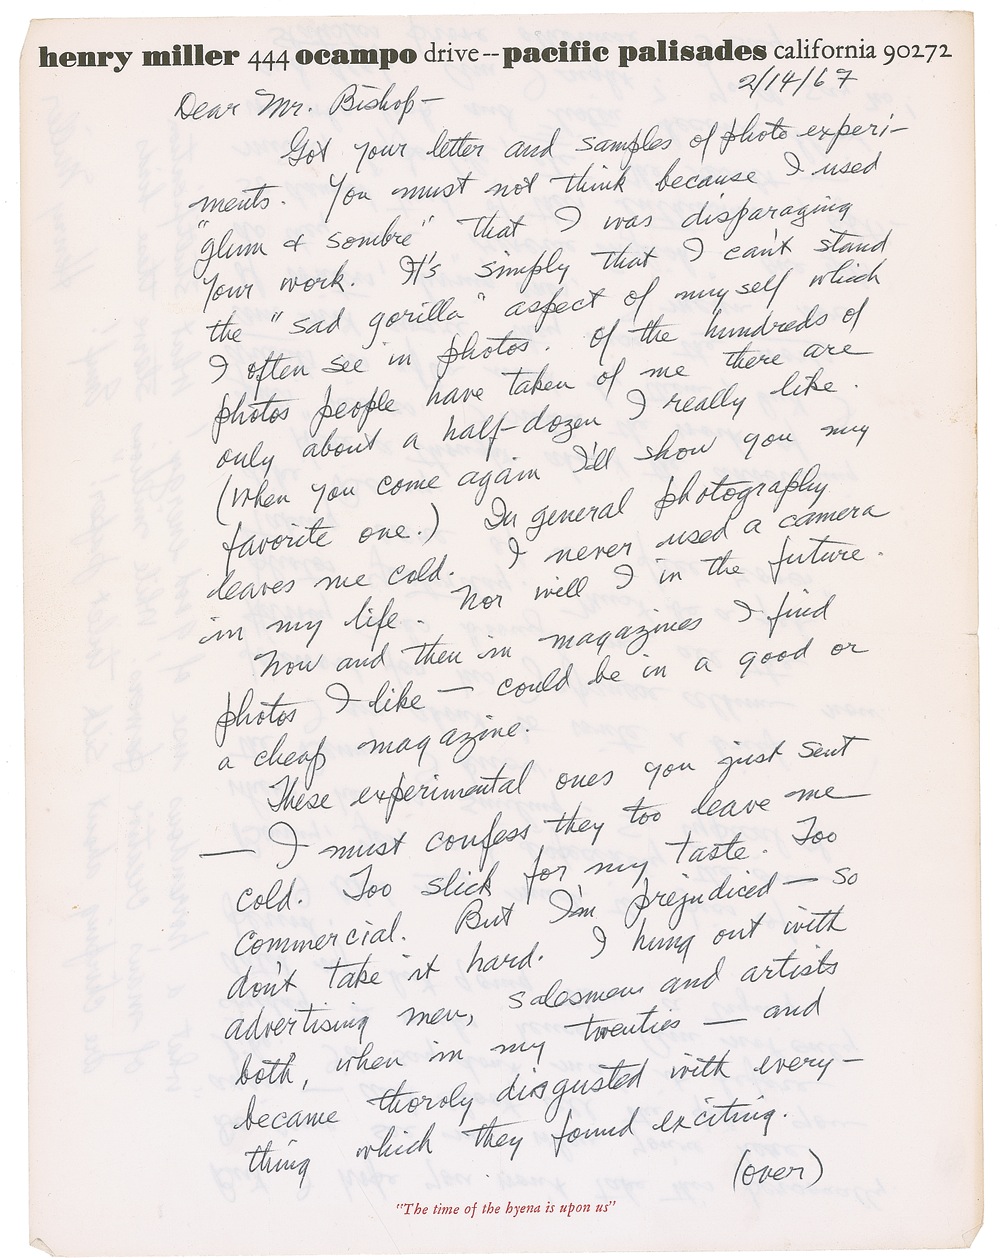 henry miller 444 ocampo drive -- pacific palisades california 90272
2/14/67
Dear Mr. Bishop —
Got your letter and samples of photo experi-
ments. You must not think because I used
"glum & sombre" that I was disparaging
your work. It's simply that I can't stand
the "sad gorilla" aspect of myself which
I often see in photos. Of the hundreds of
photos people have taken of me there are
only about a half-dozen I really like.
(When you come again I'll show you my
favorite one.) In general photography
leaves me cold. I never used a camera
in my life. Nor will I in the future.
Now and then in magazines I find
photos I like — could be in a good or
a cheap magazine.
These experimental ones you just sent
— I must confess they too leave me
cold. Too slick for my taste. Too
commercial. But I'm prejudiced — so
don't take it hard. I hung out with
advertising men, salesmen and artists
both, when in my twenties — and
became thoroly disgusted with every-
thing which they found exciting.
(over)
"The time of the hyena is upon us"